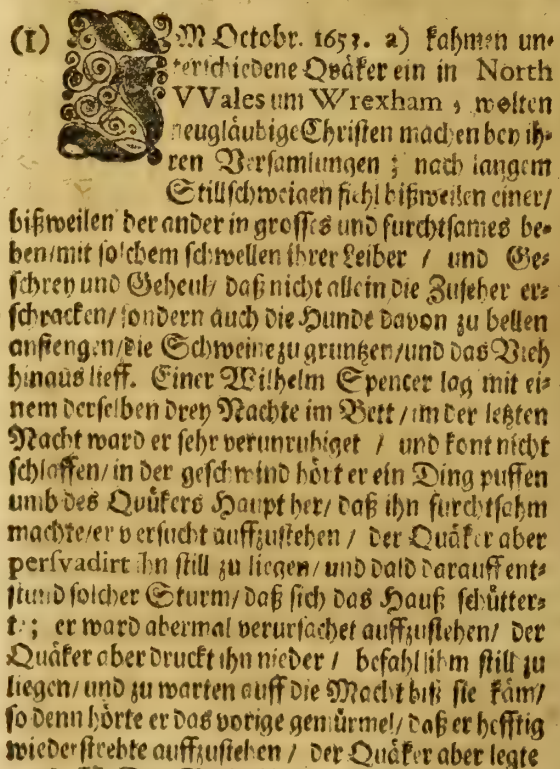 (1) IM Octobr. 1653. a) kahmen un-
terschiedene Quäker ein in North
VVales um Wrexham, wolten
neugläubige Christen machen bey ih-
ren Versamlungen; nach langem
Stillschweigen fiehl bißweilen einer/
bißweilen der ander in grosses und furchtsames be-
ben/mit solchem schwellen ihrer Leiber / und Ge-
schrey und Geheul/ daß nicht allein die Zuseher er-
schracken/sondern auch die Hunde davon zu bellen
anfiengen/die Schweine zu gruntzen/und das Vieh
hinaus lieff. Einer Wilhelm Spencer lag mit ei-
nem derselben drey Nachte im Bett/im der letzten
Nacht ward er sehr verunruhiget / und kont nicht
schlaffen/in der geschwind hört er ein Ding puffen
umb des Quäkers Haupt her/ daß ihn furchtsahm
machte/er versucht auffzustehen / der Quäker aber
persvadirt ihn still zu liegen/und bald darauff ent-
stund solcher Sturm/ daß sich das Hauß schütter-
te; er ward abermal verursachet auffzustehen/ der
Quäker aber druckt ihn nieder / befahl ihm still zu
liegen/ und zu warten auff die Macht biß sie käm/
so denn hörte er das vorige gemürmel/ daß er hefftig
wiederstrebte auffzustehen / der Quäker aber legte